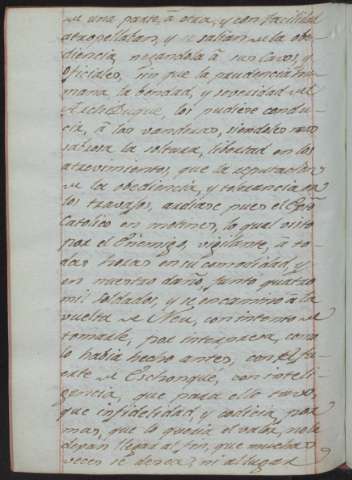 de una parte, â otra, y con facilidad
atropellaban, y se salian de la obe-
diencia, negandola â sus Cavos, y
Oficiales, sin que la prudencia hu-
mana, la bondad, y severidad del
Archiduque, los pudiese condu-
cir, â las vanderas, siendoles mas
sabrosa la soltura, libertad en los
atrevimientos, que la reputacion
de la obediencia, y tolerancia en
los travajos, ardiase pues el
Catolico en motines, lo qual visto
por el Enemigo, vigilante, â to-
das horas en su comodidad, y
en nuestro daño, junto quatro
mil soldados, y se encamino â la
vuelta de con intento de
tomarle, por interpresa, como
lo havia hecho antes, con el fu-
erte de con inteli-
gencia, que para ello tuvo,
que infidelidad, y codicia, por
mas, que lo queria el valor, no le
dejan llegar al fin, que muchas
veces se desea; ni al lugar